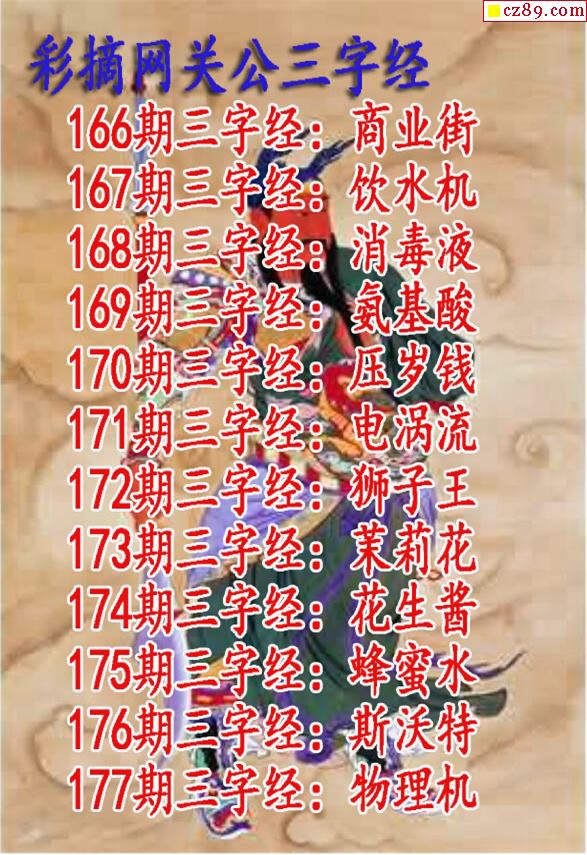 cz89.com
彩摘网关公三字经
166期三字经：商业街
167期三字经：饮水机
168期三字经：消毒液
169期三字经：氨基酸
170期三字经：压岁钱
171期三字经：电涡流
172期三字经：狮子王
173期三字经：茉莉花
174期三字经：花生酱
175期三字经：蜂蜜水
176期三字经：斯沃特
177期三字经：物理机